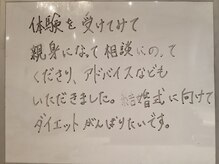 体験を受けてみて
親身になって相談にのって
くださり、アドバイスなども
いただきました。結婚式に向けて
ダイエットがんばりたいです。